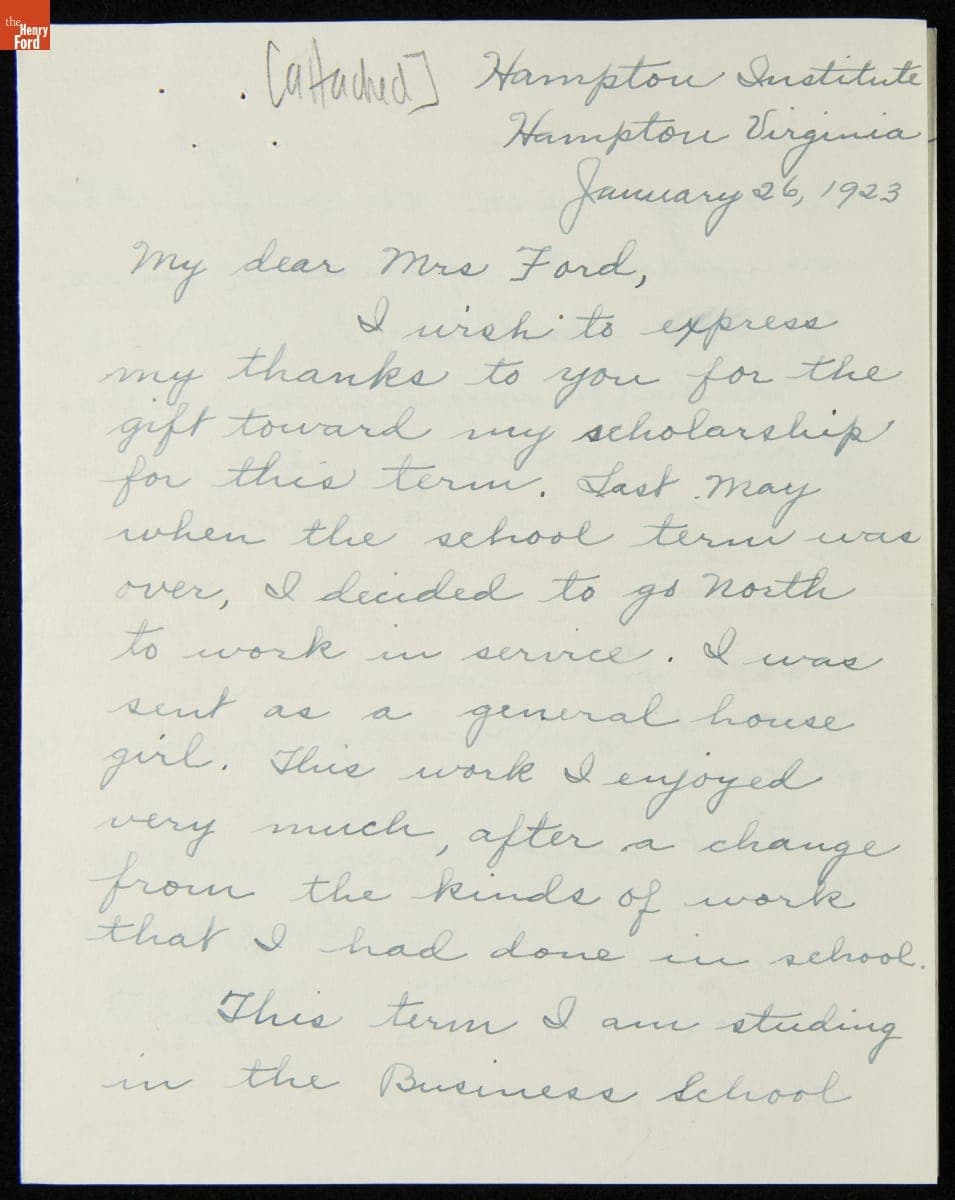 the
Henry
Ford
[attached]
Hampton Institute
Hampton Virginia
January 26, 1923
My dear Mrs Ford,
I wish to express
my thanks to you for the
gift toward my scholarship
for this term. Last May
when the school term was
over, I decided to go North
to work in service. I was
sent as a general house
girl. This work I enjoyed
very much, after a change
from the kinds of work
that I had done in school.
This term I am studing
in the Business School